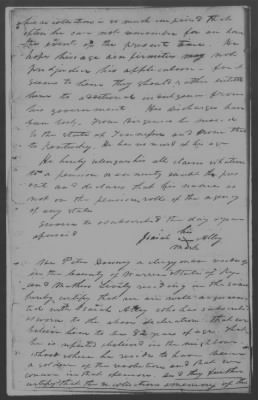 his recollection is so much impaired that
often he can not remember for an hour
the events of the present time. He
hopes his age and infirmities may not
prejudice his application. for it
seems to him they should rather entitle
him to additional indulgence from
his government His discharges have
been lost. From Virginia he moved
to the State of Tennessee and from thence
to Kentucky. He has no record of his age
He hereby relinquishes all claims whatever
to a pension or annuity except the pres
ent and declares that his name is
not on the pension roll of the agency
of any state
Sworn to & subscribed the day & year
aforesaid
his
Isaiah X Alley
mark
We Peter Downey a clergyman residing
in the County of Warren & State of Kyn
and residing in the same
hereby certify that we are well acquain
ted with Isaiah Alley who has subscribed
& sworn to the above declaration that we
believe him to be 82 years of age. that
he is reputed & believed in the neighbour
hood where he resides to have been
a soldier of the revolution and that we
concur in that opinion. And they further
certify that the recollection & memory of the